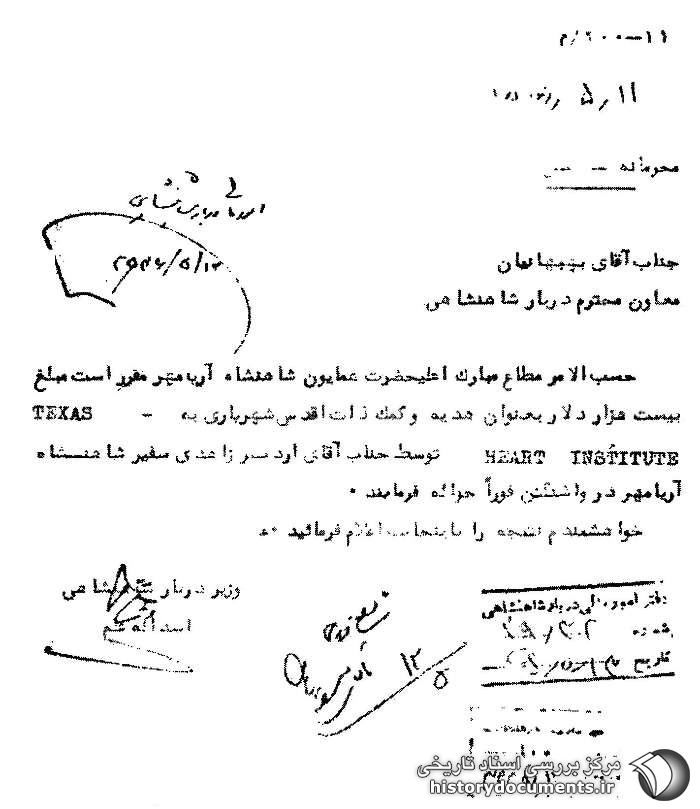 ۱۱-۲۰۰/م
۵/۱۱
محرمانه
امور مالی دربار شاهنشاهی
۲۵۳۶/۵/۱۲
جناب آقای بهبهانیان
معاون محترم دربار شاهنشاهی
حسب الامر مطاع مبارك اعلیحضرت همایون شاهنشاه آریامهر مقرر است مبلغ
بیست هزار دلار بعنوان هدیه و کمك ذات اقدس شهریاری به - TEXAS
HEART INSTITUTE توسط جناب آقای اردشیر زاهدی سفیر شاهنشاه
آریامهر در واشنگتن فوراً حواله فرمایند ۰
خواهشمندم نتیجه را باینجانب اعلام فرمائید ۰
وزیر دربار شاهنشاهی
اسداله علم
۱۲/۵
دفتر امور مالی دربار شاهنشاهی
شماره
تاریخ
مرکز بررسی اسناد تاریخی
historydocuments.ir